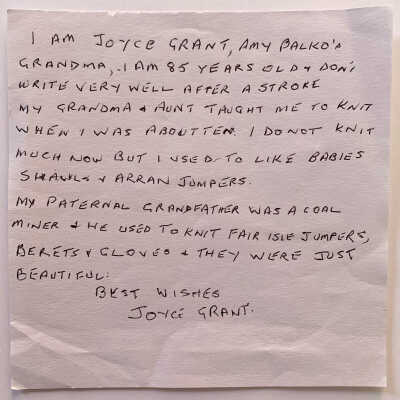 I AM JOYCE GRANT, AMY BALKO'S
GRANDMA, I AM 85 YEARS OLD & DON'T
WRITE VERY WELL AFTER A STROKE
MY GRANDMA & AUNT TAUGHT ME TO KNIT
WHEN I WAS ABOUT TEN. I DO NOT KNIT
MUCH NOW BUT I USED TO LIKE BABIES
SHAWLS & ARRAN JUMPERS.
MY PATERNAL GRANDFATHER WAS A COAL
MINER & HE USED TO KNIT FAIR ISLE JUMPERS,
BERETS & GLOVES & THEY WERE JUST
BEAUTIFUL.
BEST WISHES
JOYCE GRANT.